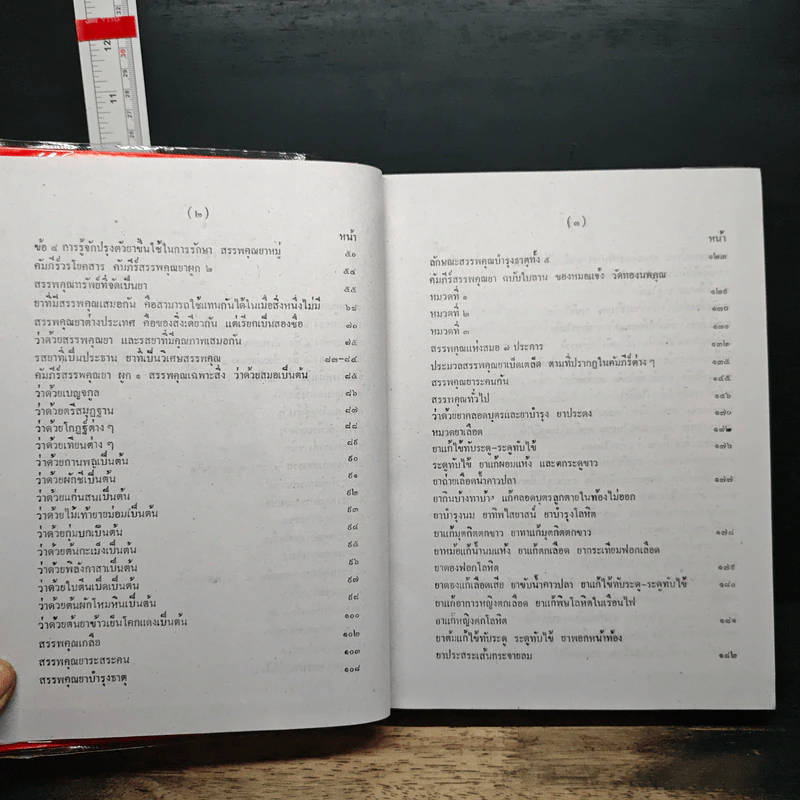 12
30
11
(๒)
หน้า
ข้อ ๔ การรู้จักปรุงตัวยาขึ้นใช้ในการรักษา สรรพคุณยาหมู่ ๕๐
คัมภีร์วรโยคสาร คัมภีร์สรรพคุณยาผูก ๒ ๕๔
สรรพคุณทรัพย์ที่จัดเป็นยา ๕๕
ยาที่มีสรรพคุณเสมอกัน คือสามารถใช้แทนกันได้ในเมื่อสิ่งหนึ่งไม่มี ๖๘
สรรพคุณยาต่างประเทศ คือของสิ่งเดียวกัน แต่เรียกเป็นสองชื่อ ๗๐
ว่าด้วยสรรพคุณยา และรสยาที่มีคุณภาพเสมอกัน ๗๕
รสยาที่เป็นประธาน ยาที่เป็นวิเศษสรรพคุณ ๘๓-๘๔
คัมภีร์สรรพคุณยา ผูก ๑ สรรพคุณเฉพาะสิ่ง ว่าด้วยสมอเป็นต้น ๘๕
ว่าด้วยเบญจกูล ๘๖
ว่าด้วยตรีสมุฏฐาน ๘๗
ว่าด้วยโกฏฐ์ต่าง ๆ ๘๘
ว่าด้วยเทียนต่าง ๆ ๘๙
ว่าด้วยกานพลูเป็นต้น ๙๐
ว่าด้วยผักชีเป็นต้น ๙๑
ว่าด้วยแก่นสนเป็นต้น ๙๒
ว่าด้วยไม้เท้ายายม่อมเป็นต้น ๙๓
ว่าด้วยกุ่มบกเป็นต้น ๙๔
ว่าด้วยต้นกะเม็งเป็นต้น ๙๕
ว่าด้วยพิลังกาสาเป็นต้น ๙๖
ว่าด้วยใบตีนเป็ดเป็นต้น ๙๗
ว่าด้วยต้นผักโหมหินเป็นต้น ๙๘
ว่าด้วยต้นยาข้าวเย็นโคกแดงเป็นต้น ๑๐๐
สรรพคุณเกลือ ๑๐๒
สรรพคุณยาระสระคน ๑๐๓
สรรพคุณยาบำรุงธาตุ ๑๐๘
(๓)
หน้า
ลักษณะสรรพคุณบำรุงธาตุทั้ง ๕ ๑๒๓
คัมภีร์สรรพคุณยา ฉบับใบลาน ของหมอแจ้ง วัดทองนพคุณ
หมวดที่ ๑ ๑๒๕
หมวดที่ ๒ ๑๓๐
หมวดที่ ๓ ๑๓๑
สรรพคุณแห่งสมอ ๗ ประการ ๑๓๒
ประมวลสรรพคุณยาเบ็ดเตล็ด ตามที่ปรากฏในคัมภีร์ต่าง ๆ ๑๓๕
สรรพคุณยาระคนกัน ๑๔๕
สรรพคุณทั่วไป ๑๔๖
ว่าด้วยยาคลอดบุตรและยาบำรุง ยาประดง ๑๗๐
หมวดยาเลือด ๑๗๒
ยาแก้ไข้ทับระดู-ระดูทับไข้ ๑๗๖
ระดูทับไข้ ยาแก้ผอมแห้ง และตกระดูขาว
ยาถ่ายเลือดน้ำคาวปลา ๑๗๗
ยากินบ้างทาบ้าง แก้คลอดบุตรลูกตายในท้องไม่ออก
ยาบำรุงนม ยาทิพไสยาสน์ ยาบำรุงโลหิต
ยาแก้มุตกิตตกขาว ยาทาแก้มุตกิตตกขาว ๑๗๘
ยาหม้อแก้น้ำนมแห้ง ยาแก้ตกเลือด ยากระเทียมฟอกเลือด
ยาดองฟอกโลหิต ๑๗๙
ยาดองแก้เลือดเสีย ยาขับน้ำคาวปลา ยาแก้ไข้ทับระดู-ระดูทับไข้ ๑๘๐
ยาแก้อาการหญิงตกเลือด ยาแก้พิษโลหิตในเรือนไฟ
ยาแก้หญิงตกโลหิต ๑๘๑
ยาต้มแก้ไข้ทับระดู ระดูทับไข้ ยาพอกหน้าท้อง
ยาประสระเส้นกระจายลม ๑๘๒